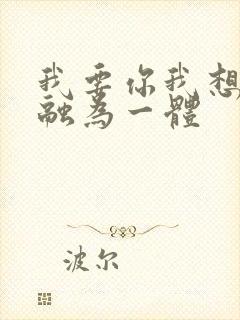 我要你我想
融為一體
波尔